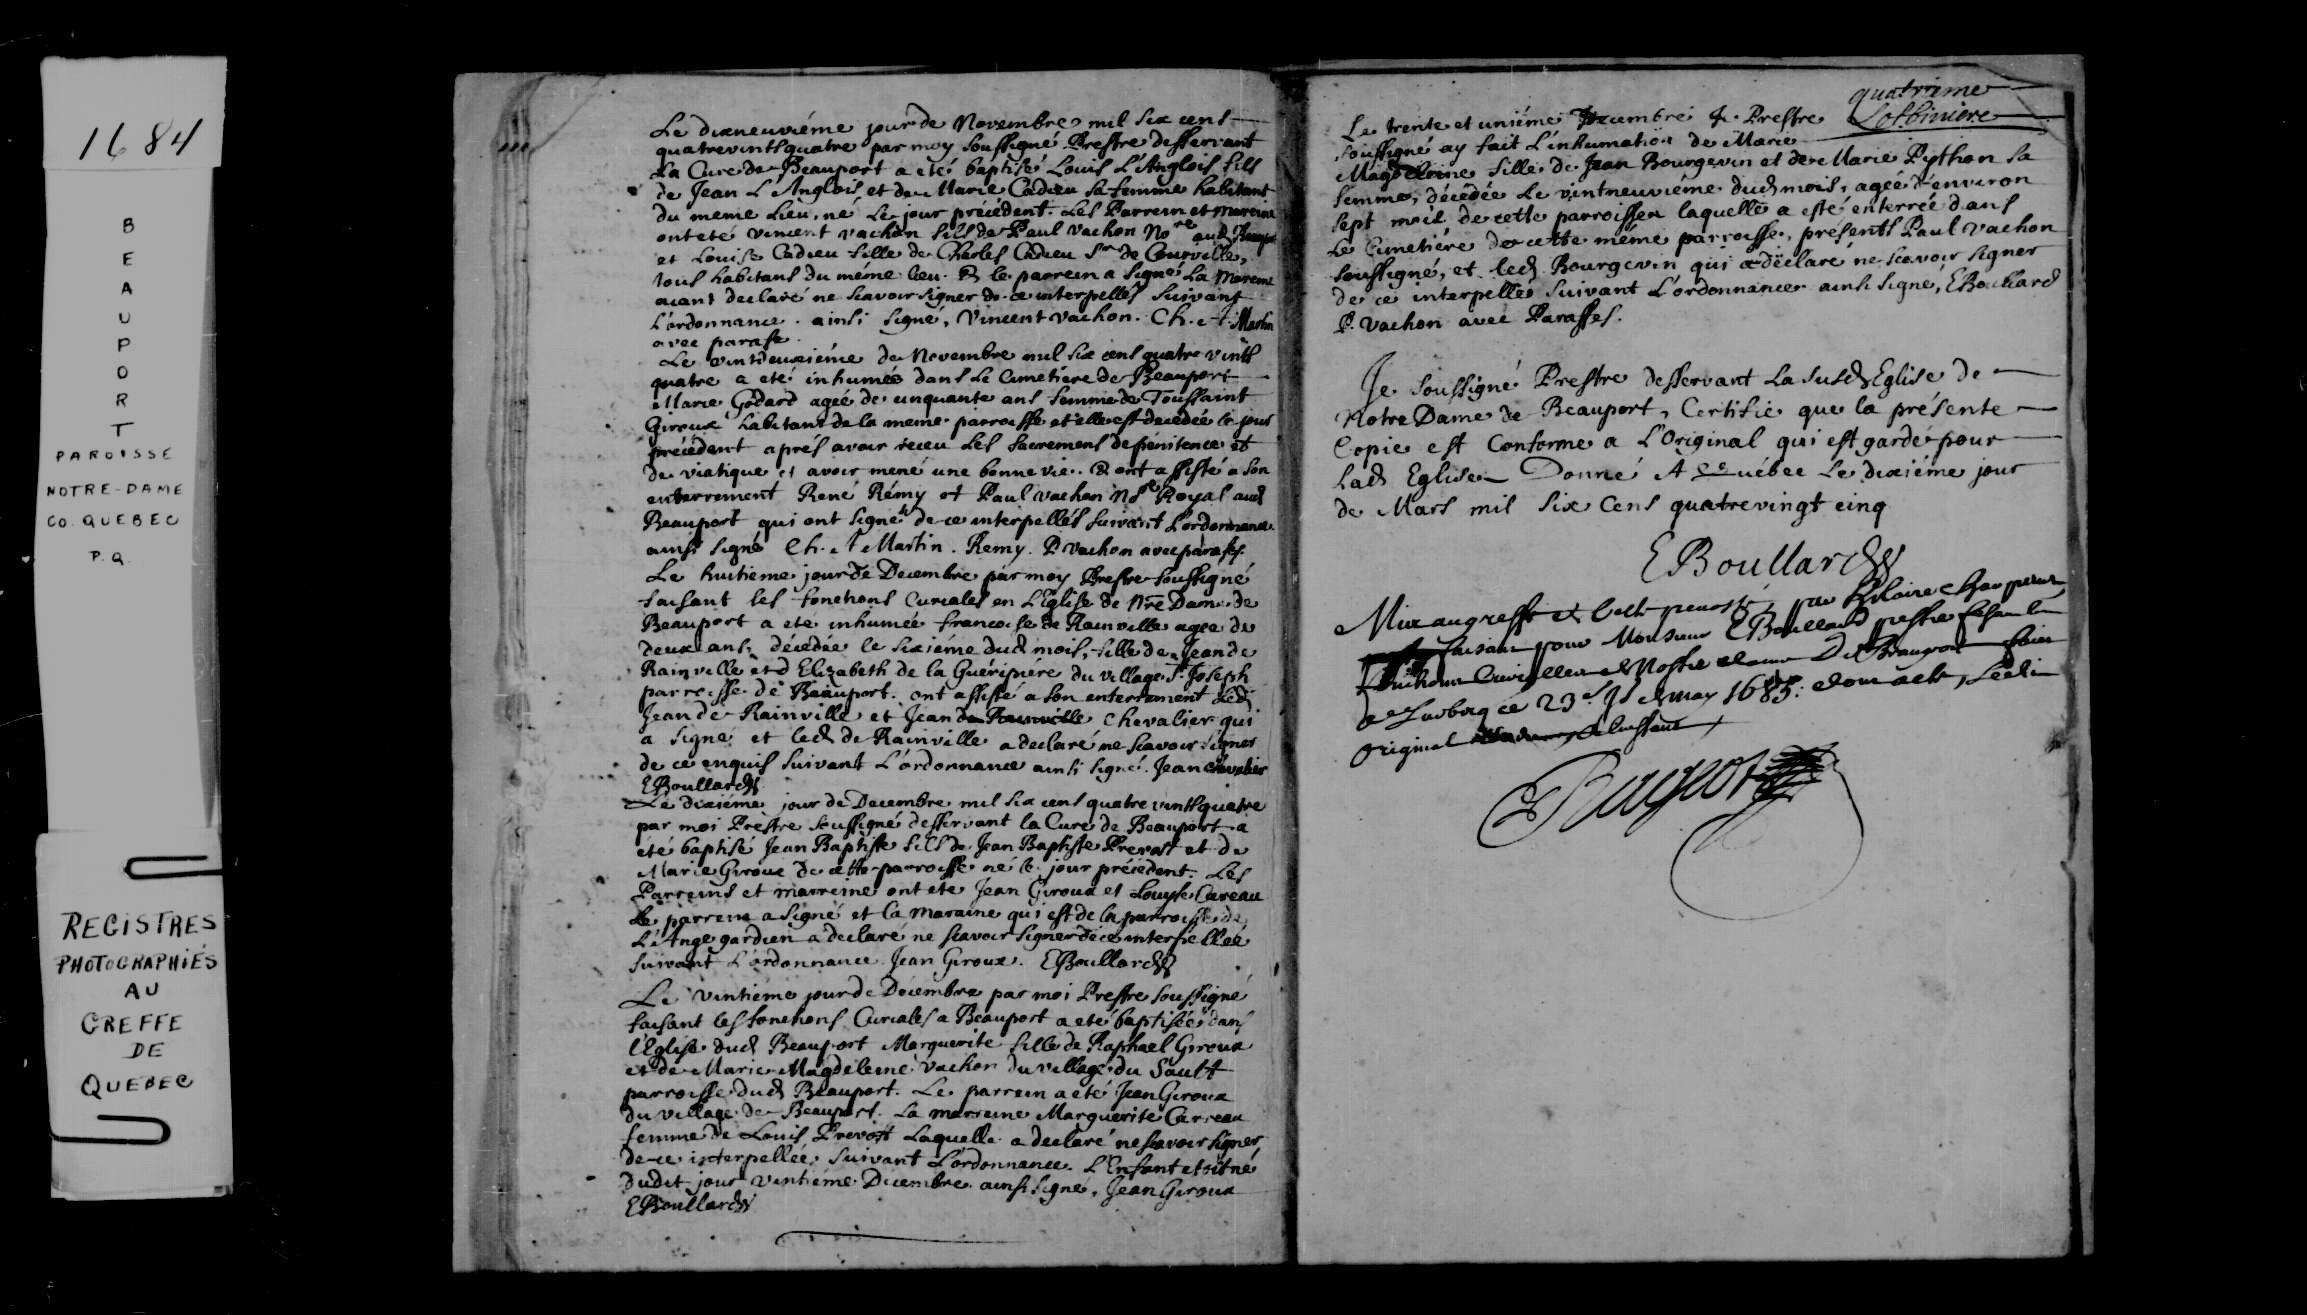 1684
B
E
A
U
P
O
R
T
PAROISSE
NOTRE-DAME
CO. QUEBEC
P.Q.
REGISTRES
PHOTOGRAPHIÉS
AU
GREFFE
DE
QUEBEC
Le dixneuviéme jour de Novembre mil six cens
quatrevints quatre par moy soussigné Prestre desservant
La Cure de Beauport a eté baptisé Louis L'Anglois fils
de Jean L'Anglois et de Marie Cadieu sa femme habitant
du meme Lieu, né Le jour précédent. Les Parrein et Mareine
ont eté Vincent Vachon fils de Paul Vachon Nore aud
et Louise Cadieu fille de Charles Cadieu Sr de Courville,
tous habitans du méme lieu. & le parrein a signé La Mareine
aiant declaré ne scavoir signer de ce interpellés suivant
L'ordonnance. ainsi signé, Vincent Vachon. Ch. A. Martin
avec parafe.
Le vintdeuxiéme de Novembre mil six cens quatre vints
quatre a eté inhumée dans Le Cimetiere de Beauport
Marie Godard agée de cinquante ans femme de Toussaint
Giroux habitant de la meme parroisse et elle est decedée le jour
précédent aprés avoir receu les sacremens de pénitence et
de viatique et avoir mené une bonne vie. & ont assisté a son
enterrement René Rémy et Paul Vachon Nore Royal aud
Beauport qui ont signé de ce interpellés suivant L'ordonnance
ainsi signé Ch. A. Martin. Remy. P. Vachon avec parafes.
Le huitieme jour de Decembre par moy Prestre soussigné
faisant les fonctions Curiales en L'Eglise de Nre Dame de
Beauport a eté inhumée francoise de Rainville agée de
deux ans, décédée le sixiéme dud mois, fille de Jean de
Rainville et d'Elizabeth de la Guéripiére du village St Joseph
parroisse de Beauport. ont assisté a son enterrement led
Jean de Rainville et Jean de Rainville Chevalier qui
a signé et led de Rainville a declaré ne scavoir signer
de ce enquis suivant L'ordonnance ainsi signé. Jean chevalier
EBoullard
Le dixiéme jour de Decembre mil six cens quatre vints quatre
par moi Prestre soussigné desservant la Cure de Beauport a
eté baptisé Jean Baptiste fils de Jean Baptiste Prevost et de
Marie Giroux de cette parroisse né le jour précédent. Les
Parreins et marreine ont eté Jean Giroux et Louyse Careau
Le parrein a signé et la maraine qui est de la parroisse de
L'Ange gardien a declaré ne scavoir signer de ce interpellée
suivant L'ordonnance. Jean Giroux. EBoullard
Le vintieme jour de Décembre par moi Prestre soussigné
faisant les fonctions Curiales a Beauport a eté baptisée dans
l'Eglise dud Beauport Marguerite fille de Raphael Giroux
et de Marie Magdeleine Vachon du village du Sault
parroisse dud Beauport. Le parrein a eté Jean Giroux
du village de Beauport. La marreine Marguerite Carreau
femme de Louis Prevost Laquelle a declaré ne scavoir signer
de ce interpellée suivant L'ordonnance. L'Enfant etoit né
dudit jour vintiéme Decembre ainsi signé, Jean Giroux
EBoullard
quatrieme
Lotbiniere
Le trente et uniéme Decembre Je Prestre
soussigné ay fait L'inhumation de Marie
Magdeleine fille de Jean Bourgevin et de Marie Python sa
femme, décédée le vintneuviéme dud mois, agée d'environ
sept mois de cette parroisse laquelle a esté enterrée dans
Le Cimetiére de cette méme parroisse, présents Paul Vachon
soussigné, et led Bourgevin qui a declaré ne scavoir signer
de ce interpellés suivant L'ordonnance ainsi signé, EBoullard
P. Vachon avec Paraffes.
Je soussigné Prestre desservant La susd Eglise de
Notre Dame de Beauport, Certifie que la présente
Copie est Conforme a L'Original qui est gardé pour
Lad Eglise Donné A Québec Le dixiéme jour
de Mars mil six Cens quatrevingt cinq
EBoullard
Mis au greffe par Hilaire
faisant pour Monsieur EBoullard prestre
Nostre Dame De Beauport
ce 23e may 1685
original